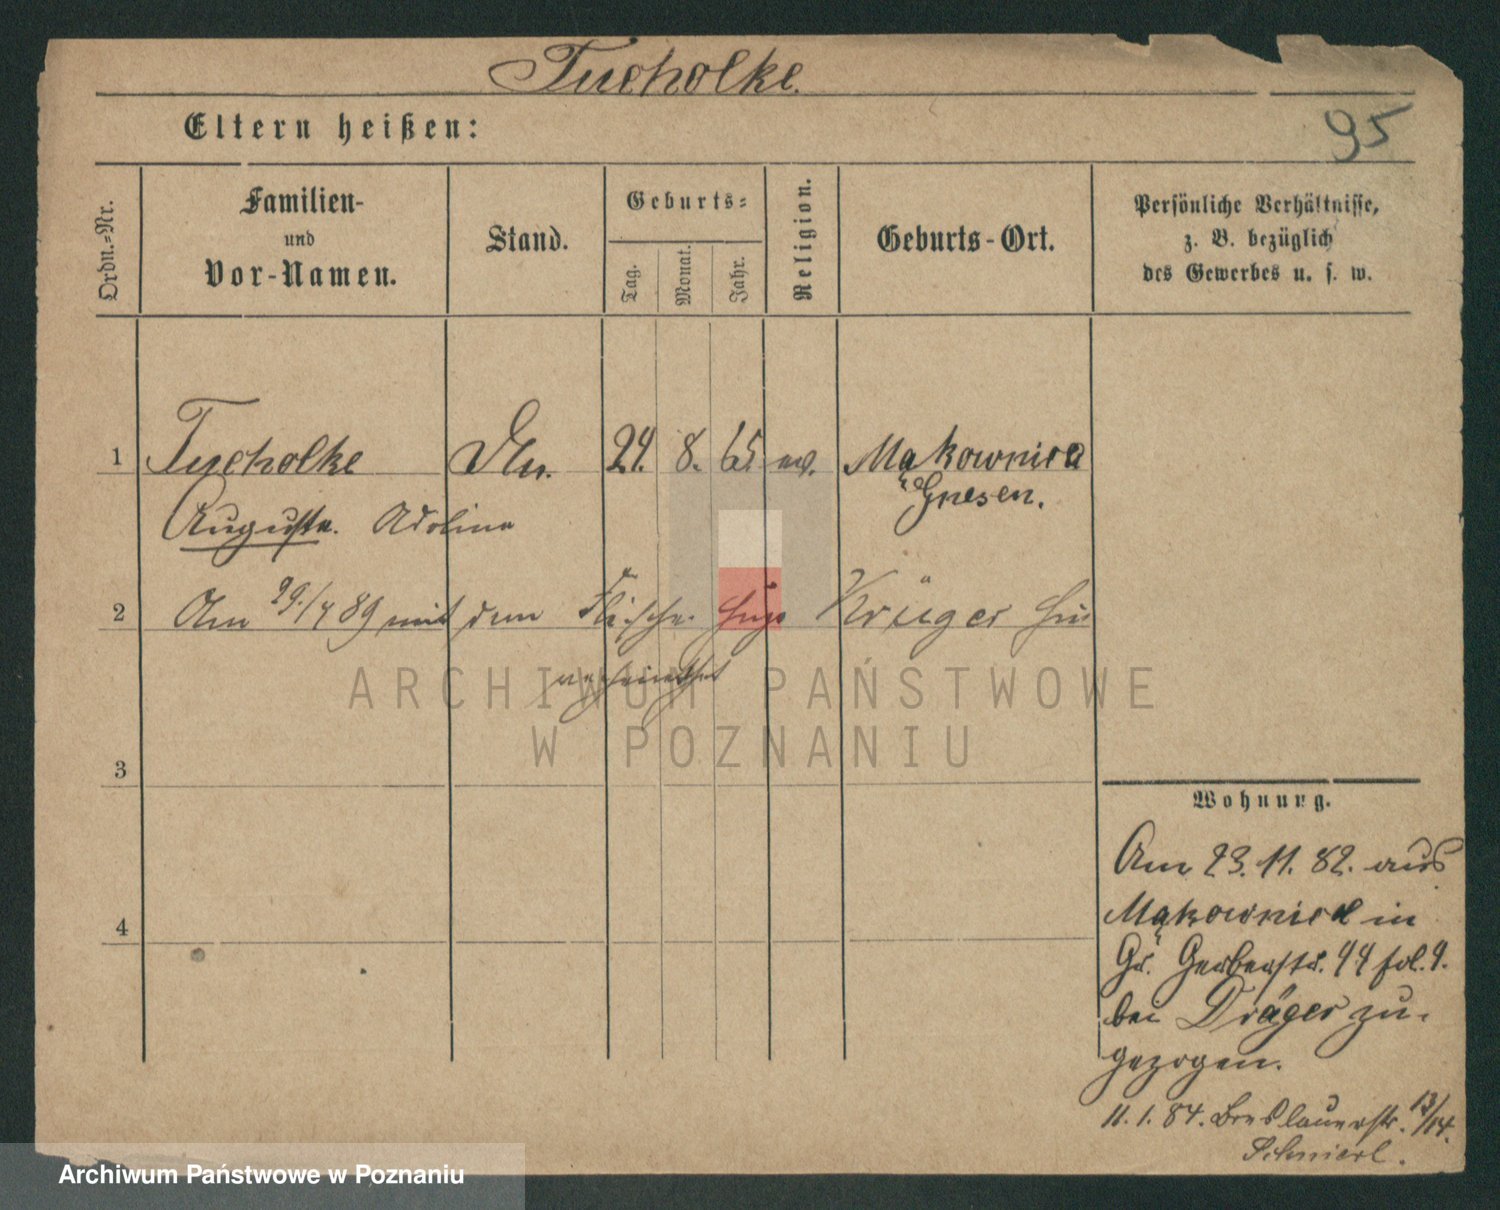 Tucholke.
95
Eltern heißen:
Ordn.=Nr.
Familien-
und
Vor-Namen.
Stand.
Geburts=
Tag.
Monat.
Jahr.
Religion.
Geburts-Ort.
Persönliche Verhältnisse,
z. B. bezüglich
des Gewerbes u. s. w.
1 Tucholke 24. 8. 65 ev. Mąkownica
Gnesen.
Auguste. Adoline
2 Am 29./4 89 mit dem Hugo Krüger
verheirathet
ARCHIWUM PAŃSTWOWE
W POZNANIU
3
4
Wohnung.
Am 23. 11. 82. aus
Mąkownica in
Gr. Gerberstr. 44 fol. 9.
bei Dräger zu-
gezogen.
11. 1. 84. Breslauerstr. 13/14.
Archiwum Państwowe w Poznaniu